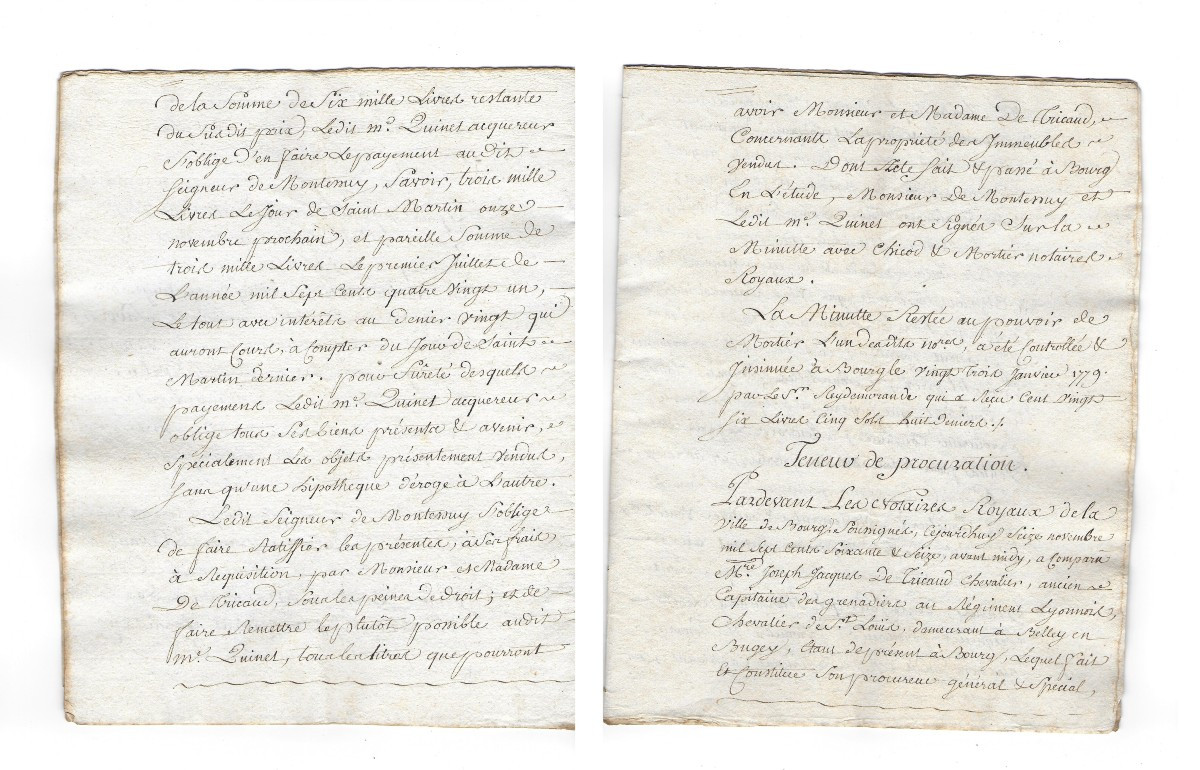 de la Somme de Six mille Livres restante
du Susdit prix, Ledit mr. Quinet acquereur
s'oblige d'en faire Le payement au dit
seigneur de Montessuy, Savoir, trois mille
Livres Le jour de Saint Martin onze
novembre prochain, et pareille Somme de
trois mille Livres Le premier Juillet de
L'année mil Sept Cents quatre vingt un,
Le tout avec intérêts au denier vingt qui
auront Cours, à Compter du Jour de Saint
Martin dernier. pour Sûreté desquels
payements Ledit mr. Quinet acquereur
oblige tous Ses biens présents & avenir,
spécialement Les objets présentement vendus,
sans qu'une hipotheque déroge à L'autre.
Ledit Seigneur de Montessuy s'oblige
de faire Ratiffier les présentes, à ses frais
à Requisition, par Monsieur et Madame
De Tricaud, sous les peines de droit; et de
faire Remettre le plutôt possible audit
mr. Quinet, tous les titres que pourront
avoir Monsieur et Madame De Tricaud,
Concernants La propriété des Immeubles
vendus. Dont Acte fait & passé à Bourg
En L'étude, Monsieur De Montessuy et
Ledit mr. Quinet ont Signés Sur la
Minutte avec Chicod & Mortier notaires
Royaux.
La Minutte Restée au pouvoir de
Mortier L'un desdits nores, a été Controllée &
insinuée à Bourg le vingt trois Janvier 1779.
par Le Sr. qui a Reçu Cent vingt
six Livres Cinq sols huit deniers ./.
Teneur de procuration.
Pardevant Les Notaires Royaux de la
ville de Bourg, Soussignés, Cejourd'huy Seize novembre
mil Sept Cents Soixante & Seize, avant midy, a Comparu
Mre. Joseph Jacques De Tricaud Chevalier, ancien
Capitaine des grenadiers au Régiment Lyonnois,
Chevalier de St. Loüis, demeurant à Belley en
Bugey, étant de présent à Bourg, Lequel fait
et Constitue Son procureur général & Spécial,